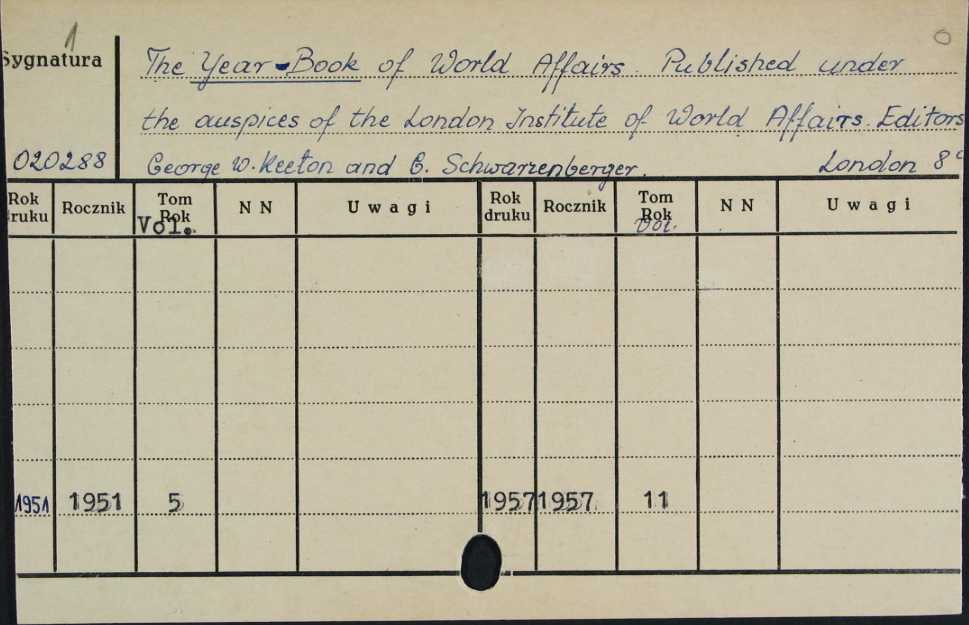 1
Sygnatura
The Year-Book of World Affairs. Published under
the auspices of the London Institute of World Affairs. Editors
020288 George W. Keeton and G. Schwarzenberger. London 8°
Rok druku Rocznik Tom Rok Vol. NN Uwagi Rok druku Rocznik Tom Rok Vol. NN Uwagi
1951 1951 5 1957 1957 11